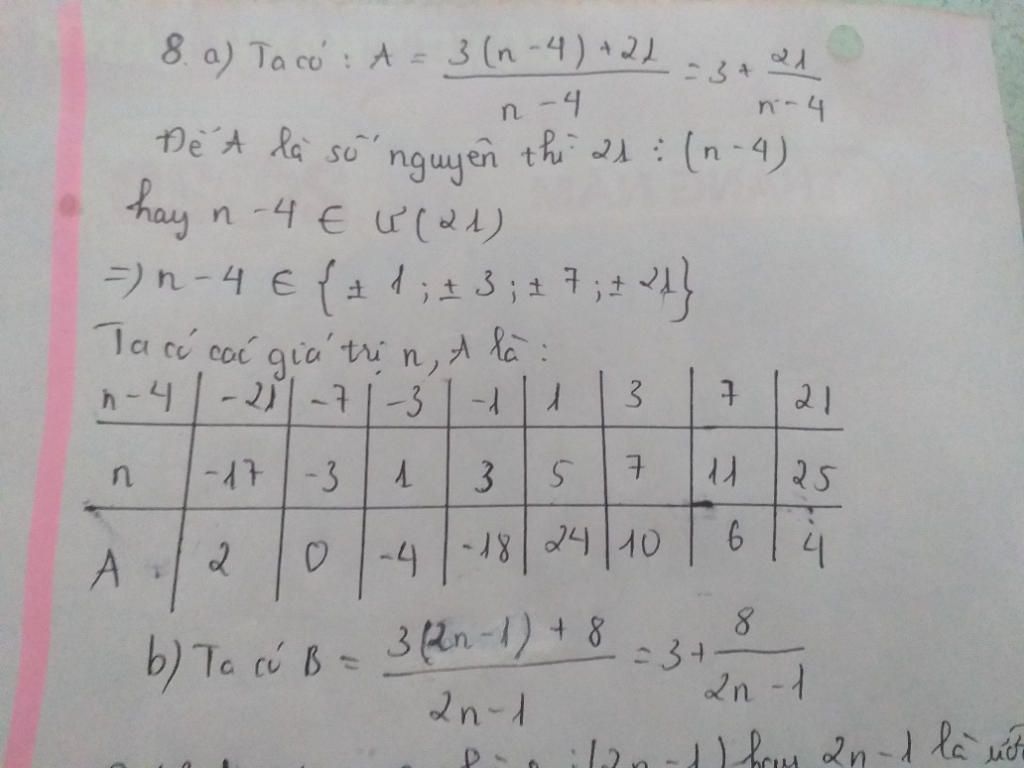 8. a) Ta có : A = \frac{3(n-4)+21}{n-4} = 3 + \frac{21}{n-4}
Để A là số nguyên thì 21 ⋮ (n-4)
hay n-4 ∈ Ư(21)
=> n-4 ∈ {± 1 ; ± 3 ; ± 7 ; ± 21}
Ta có các giá trị n, A là :
n-4 | -21 | -7 | -3 | -1 | 1 | 3 | 7 | 21
n | -17 | -3 | 1 | 3 | 5 | 7 | 11 | 25
A | 2 | 0 | -4 | -18 | 24 | 10 | 6 | 4
b) Ta có B = \frac{3(2n-1)+8}{2n-1} = 3 + \frac{8}{2n-1}
(2n-1) hay 2n-1 là